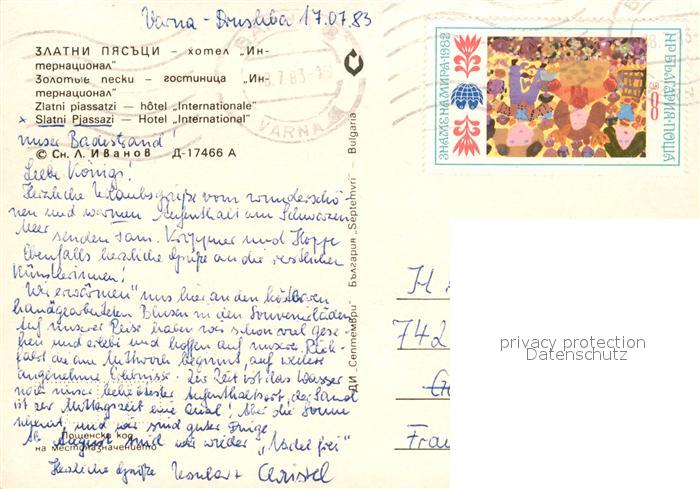 Varna - Drushba 17.07.83
ЗЛАТНИ ПЯСЪЦИ – хотел „Ин-
тернационал"
Золотые пески – гостиница „Ин-
тернационал"
Zlatni piassatzi – hôtel „Internationale"
x Slatni Pjassazi – Hotel „International"
unser Badestrand!
© Сн. Л. Иванов Д-17466 А
Liebe Königs!
Herzliche Urlaubsgrüße vom wunderschö-
nen und warmen Aufenthalt am Schwarzen
Meer
senden Fam. und
Ebenfalls herzliche Grüße an die restlichen
Künstlerinnen!
Wir „erwärmen" uns hier an den köstlichen
handgearbeiteten Blusen in den Souvenirläden
Auf unserer Reise haben wir schon viel gese-
hen und erlebt und hoffen auf unsere Rück-
fahrt die am Mittwoch beginnt, auf weitere
angenehme Erlebnisse. Zur Zeit ist das Wasser
unser beliebtester Aufenthaltsort, der Sand
ist zur Mittagszeit eine Qual! Aber die Sonne
und wir sind guter Dinge.
Ab August sind wir wieder
Пощенски код
на местоназначението
Herzliche Grüße + Christel
ДИ „Септември" България „Septemvri" – Bulgaria
ЗНАМЕ НА МИРА·1982
НР БЪЛГАРИЯ·ПОЩА
8
VARNA
H
742
Fra
privacy protection
Datenschutz